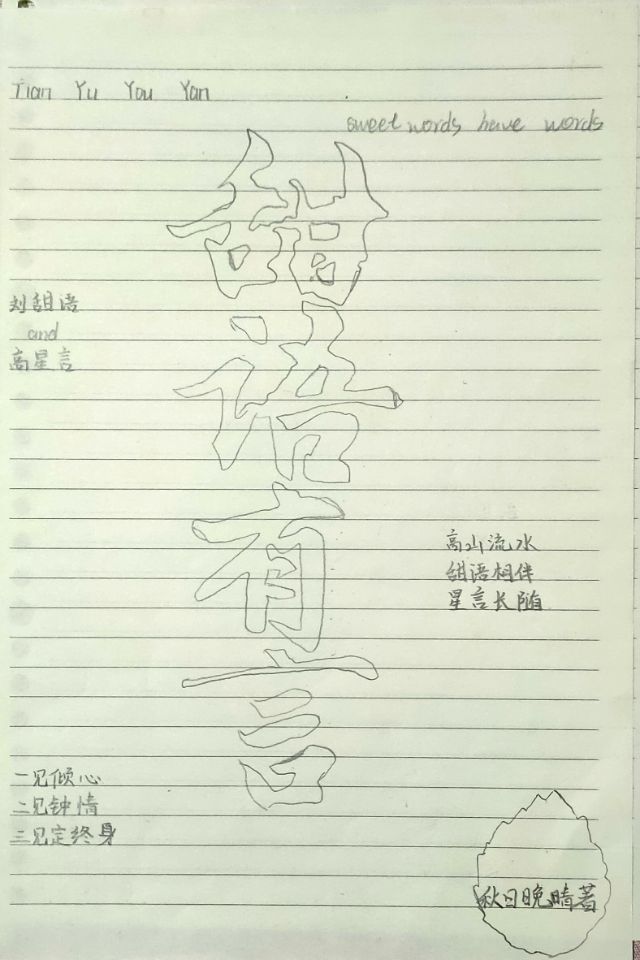 Tian Yu You Yan
sweet words have words
甜语有言
刘甜语
and
高星言
高山流水
甜语相伴
星言长随
一见倾心
二见钟情
三见定终身
秋日晚晴著